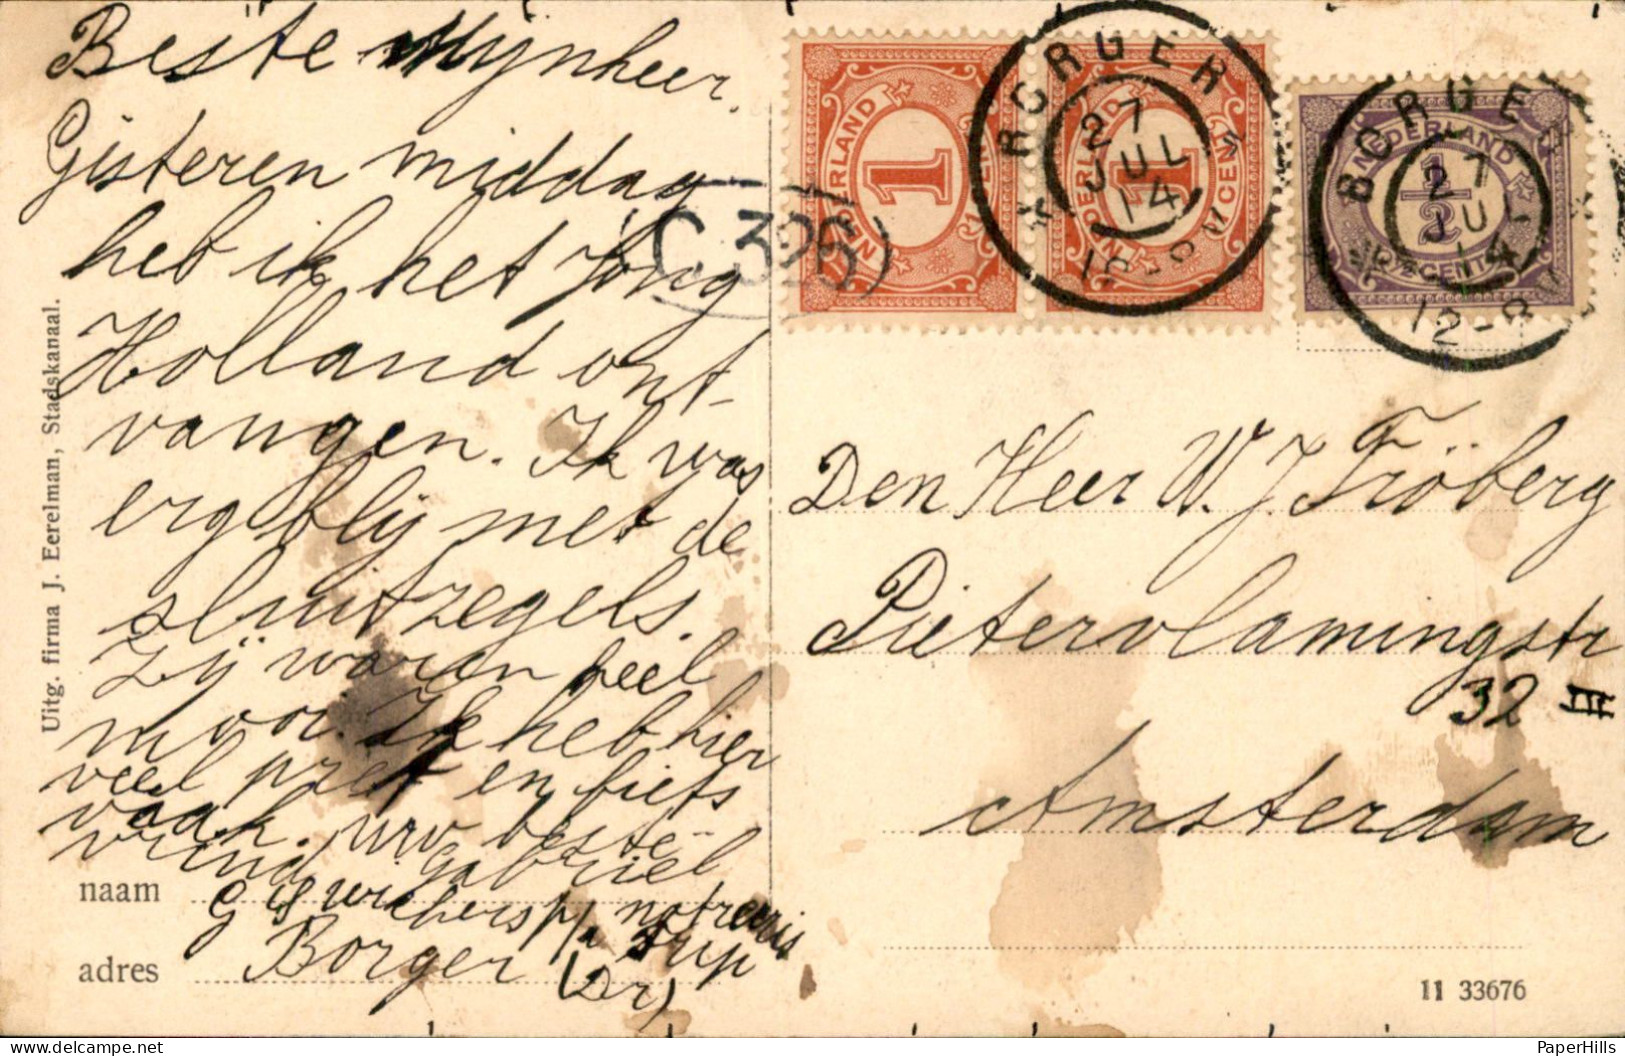 Beste Mijnheer.
Gisteren middag
heb ik het Jong
Holland ont-
vangen. Ik was
erg blij met de
sluitzegels.
Zij waren heel
mooi. Ik heb hier
veel pret en fiets
vaak. uw beste
vriend Gabriël
G Wichers p/a notaris
Borger Trip
(Dr)
naam
adres
Uitg. firma J. Eerelman, Stadskanaal.
C.326
NEDERLAND 1 1 CENT
NEDERLAND 1 CENT
NEDERLAND ½ CENT
BORGER
27
JUL
14
BORGER
27
JUL
14
12-
Den Heer W. J. Fröberg
Pietervlamingstr
32 II
Amsterdam
11 33676
delcampe.net
PaperHills